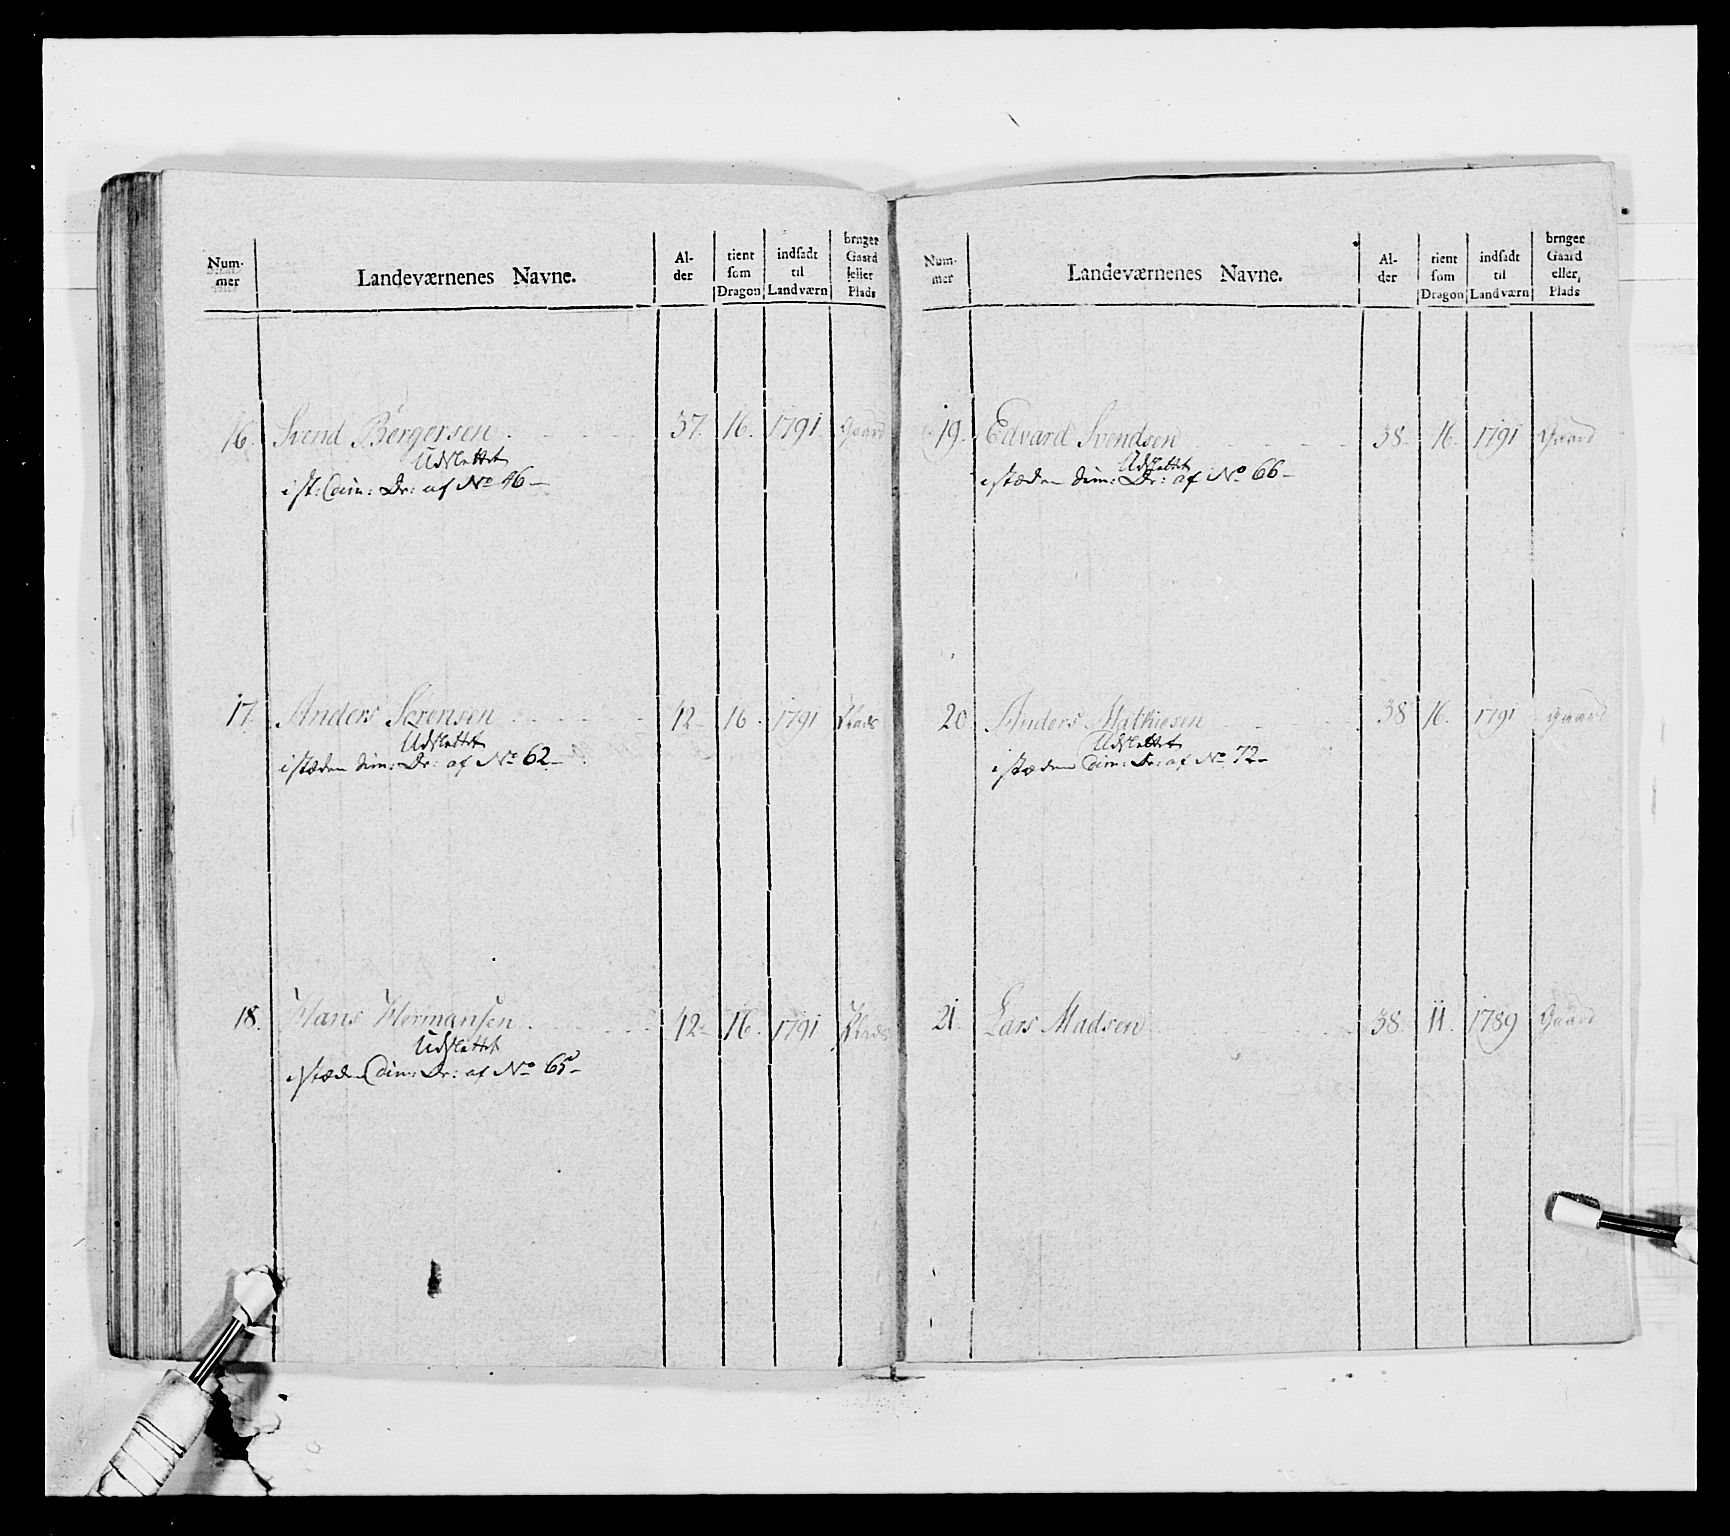 Num-
mer
Landeværnenes Navne.
Al-
der
tient
som
Dragon
indsadt
til
Landværn
bruger
Gaard
eller
Plads
16. Svend Børgersen 37. 16. 1791 Gaard
Udslettet
i st: dim: Dr: af No 46 -
17. Anders Sørensen 42 16. 1791 Plads
Udslettet
i stæden dim: Dr: af No 62 -
18. Hans Hermansen 42 16. 1791 Plads
Udslettet
i stæden dim: Dr: af No 65 -
Num-
mer
Landeværnenes Navne.
Al-
der
tient
som
Dragon
indsadt
til
Landværn
bruger
Gaard
eller,
Plads
19. Edvard Svendsen 38. 16. 1791 Gaard
Udslettet
i stæden dim: Dr: af No 66 -
20 Anders Mathiesen 38 16. 1791 Gaard
Udslettet
i stæden dim: Dr: af No 72 -
21 Lars Madsen 38. 11. 1789 Gaard